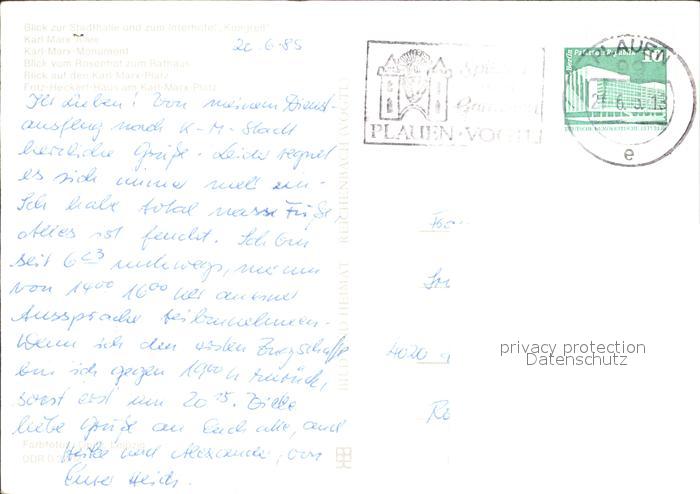 Blick zur Stadthalle und zum Interhotel „Kongreß"
Karl-Marx-Allee
Karl-Marx-Monument
Blick vom Rosenhof zum Rathaus
Blick auf den Karl-Marx-Platz
Fritz-Heckert-Haus am Karl-Marx-Platz
20.6.85
Ihr Lieben! Von meinem Dienst-
ausflug nach K-M-Stadt
herzliche Grüße. Leider regnet
es sich immer mehr ein.
Ich habe total nasse Füße,
alles ist feucht. Ich bin
seit 6 unterwegs,
von 14⁰⁰ 16⁰⁰ an einer
Aussprache teilzunehmen.
Wenn ich den ersten Zug schaffe
bin ich gegen 19⁰⁰ h zurück,
sonst erst um 20¹⁵. Viele
liebe Grüße an Euch alle, auch
Heike und Alexander, von
Eurer
Farbfotos
DDR
BILD UND HEIMAT REICHENBACH (VOGTL)
PLAUEN · VOGTL
PLAUEN
e
Berlin, Palast der Republik
10
DEUTSCHE DEMOKRATISCHE REPUBLIK
4020
privacy protection
Datenschutz